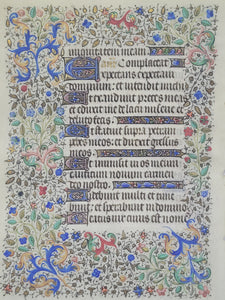 iniquitatem meam.
Complaceat
Expectans expectavi
dominum: et intendit michi
Et exaudivit preces meas
et eduxit me de lacu miserie et
de luto fecis
Et statuit supra petram
pedes meos: et direxit gressus
meos
Et immisit in os meum
canticum novum carmen
deo nostro
Videbunt multi et time
bunt: et sperabunt in domino
Beatus vir cuius est nome